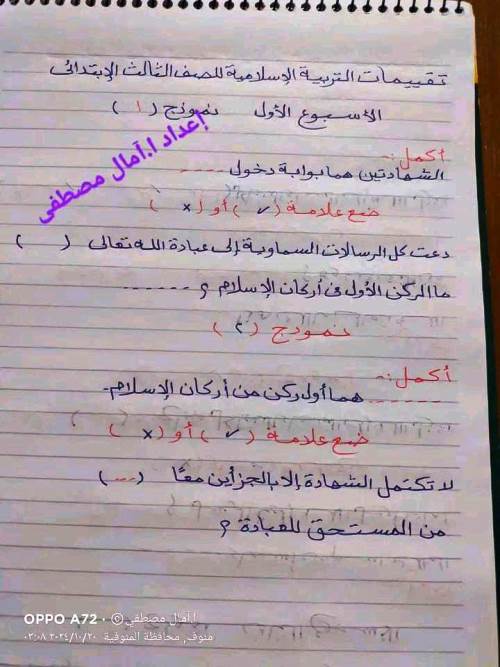 تقييمات التربية الإسلامية للصف الثالث الإبتدائى
الأسبوع الأول نموذج (١)
إعداد ا.آمال مصطفى
أكمل:-
الشهادتين هما بوابة دخول -----
ضع علامة (✓) أو (×)
دعت كل الرسالات السماوية إلى عبادة الله تعالى ( )
ما الركن الأول فى أركان الإسلام ؟ ------
نموذج (٢)
أكمل:-
------- هما أول ركن من أركان الإسلام.
ضع علامة (✓) أو (×)
لا تكتمل الشهادة إلا بالجزأين معًا (---)
من المستحق للعبادة ؟
OPPO A72 · ©ا.آمال مصطفي
منوف, محافظة المنوفية ٢٠٢٤/١٠/٢٠ ٠٢:٠٨